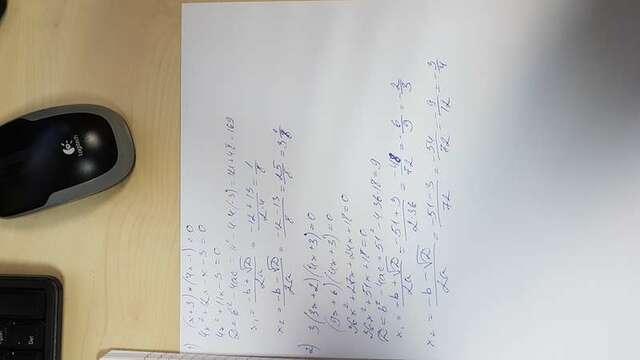 Logitech
1) (x+3)*(4x-1)=0
4x²+12x-x-3=0
4x²+11x-3=0
D=b²-4ac=11²-4·4(-3)=121+48=169
x₁=(-b+√D)/2a=(-12+13)/2·4=1/8
x₂=(-b-√D)/2a=(-12-13)/8=25/8=3 1/8
2) 3(3x+2)(4x+3)=0
(9x+6)(4x+3)=0
36x²+27x+24x+18=0
36x²+51x+18=0
D=b²-4ac=51²-4·36·18=9
x₁=(-b+√D)/2a=(-51+3)/2·36=-48/72=-6/9=-2/3
x₂=(-b-√D)/2a=(-51-3)/72=-54/72=9/12=-3/4